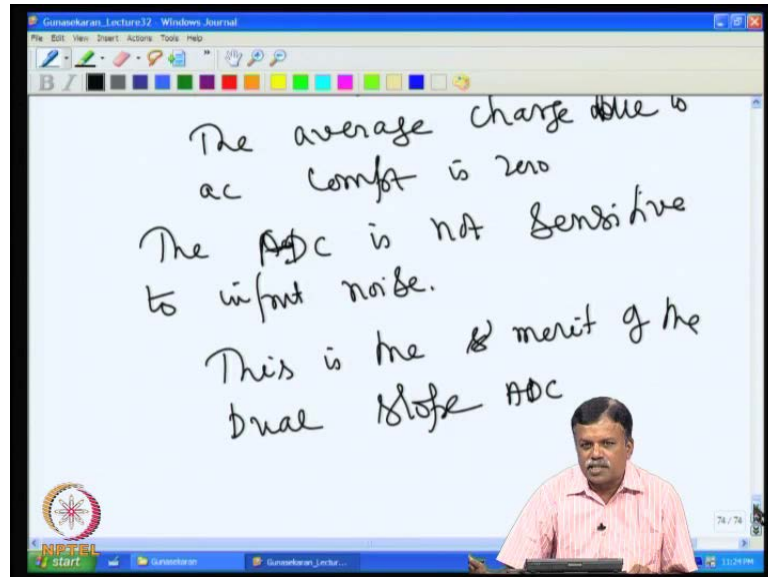 Gunasekaran_Lecture32 - Windows Journal
File Edit View Insert Actions Tools Help
B I
The average charge due to
ac compt is zero
The ADC is not sensitive
to input noise.
This is the merit of the
Dual slope ADC
74 / 74
NPTEL
start
Gunasekaran
Gunasekaran_Lectur...
11:24 PM